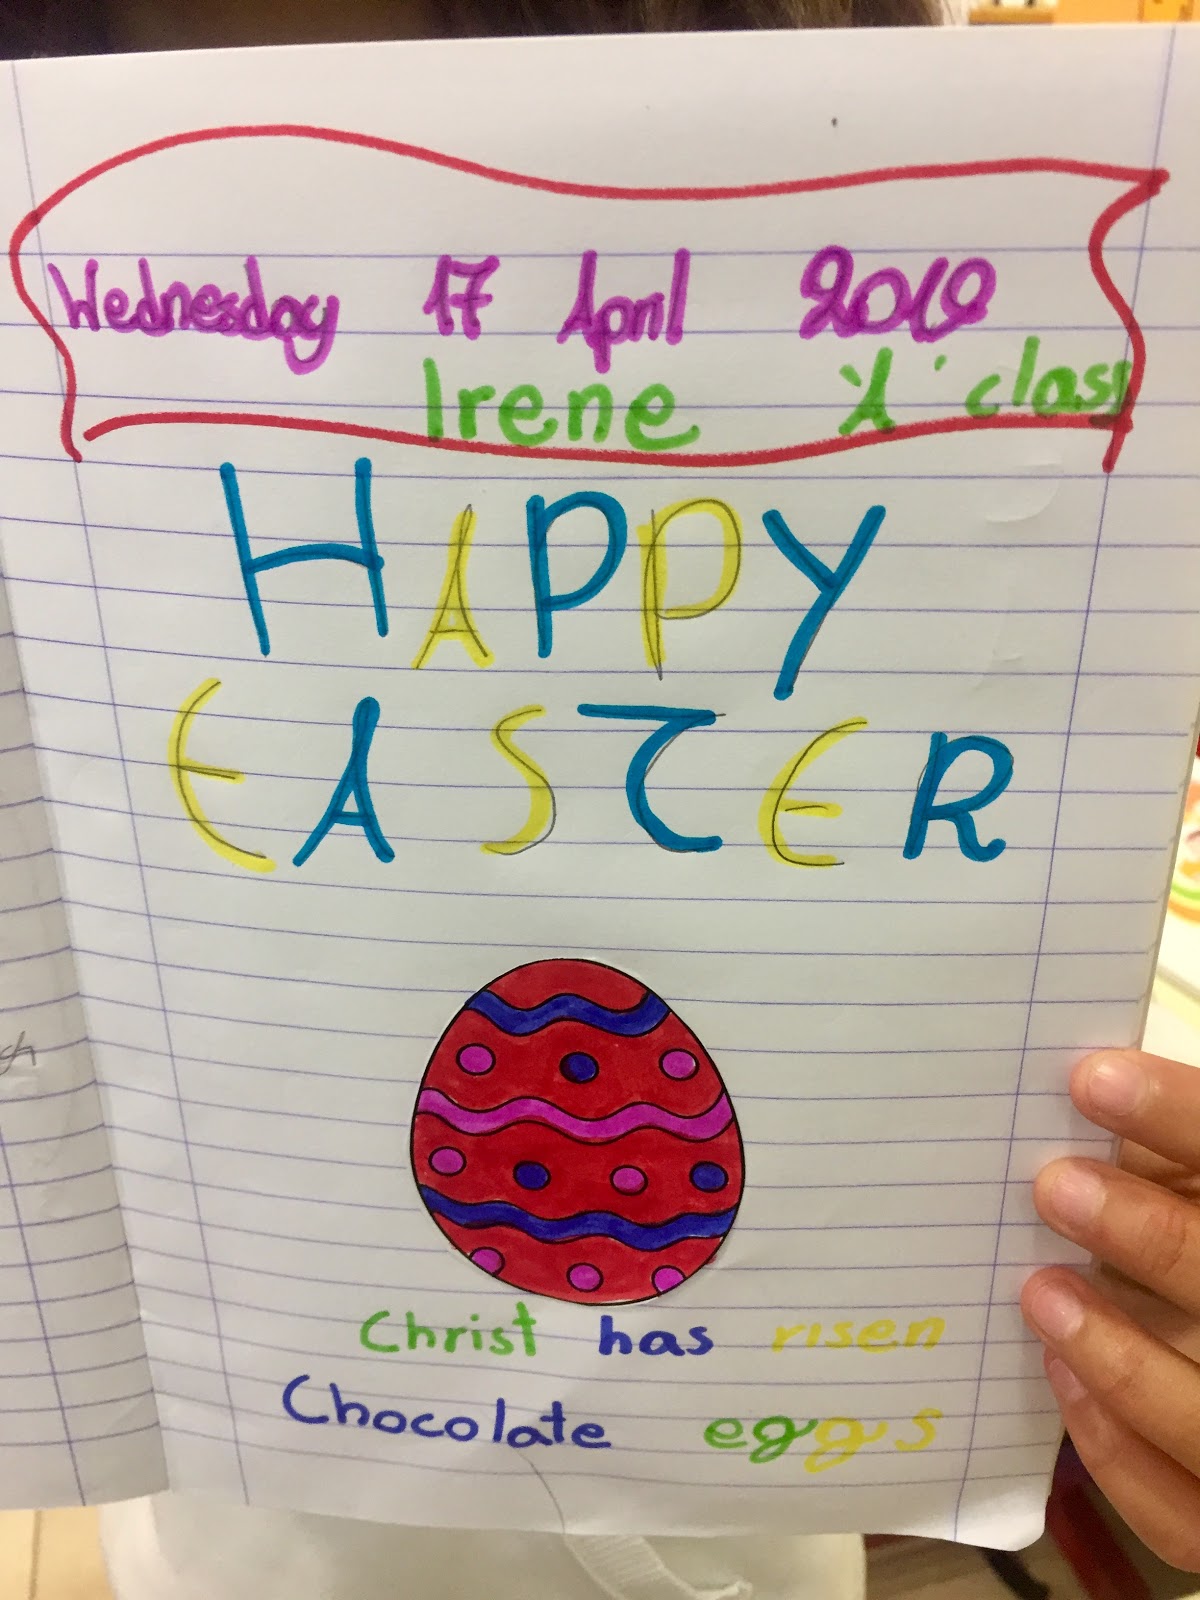 Wednesday 17 April 2019
Irene 'A' class
HAPPY
EASTER
Christ has risen
Chocolate eggs